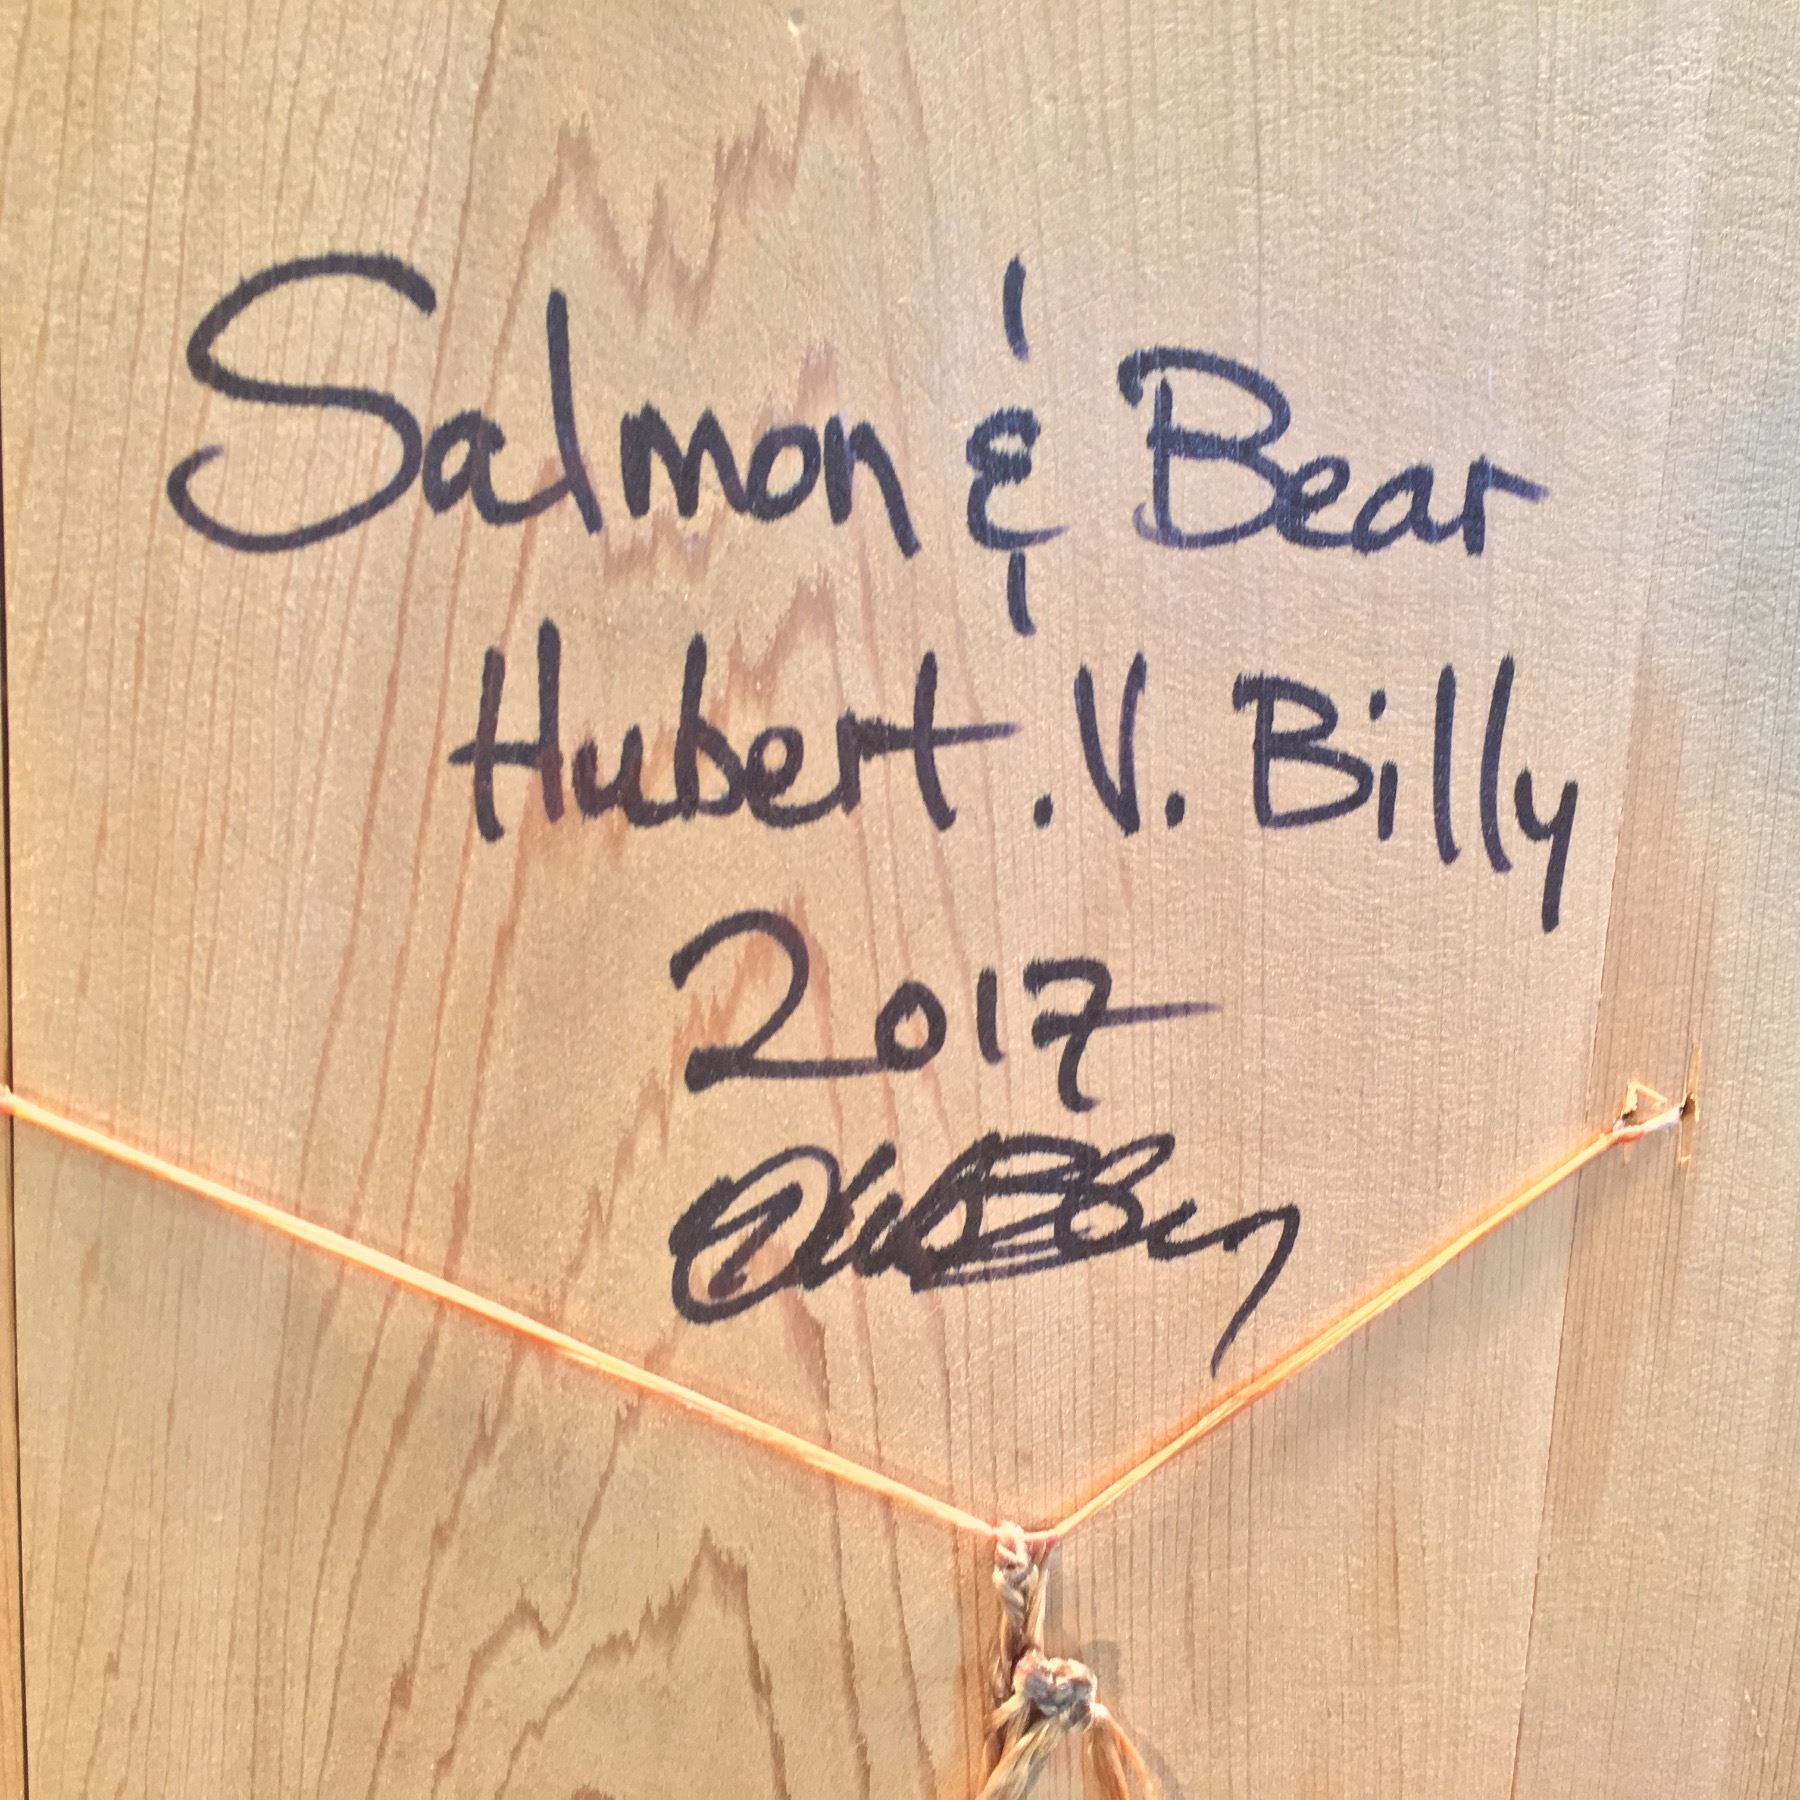 Salmon & Bear
Hubert .V. Billy
2017